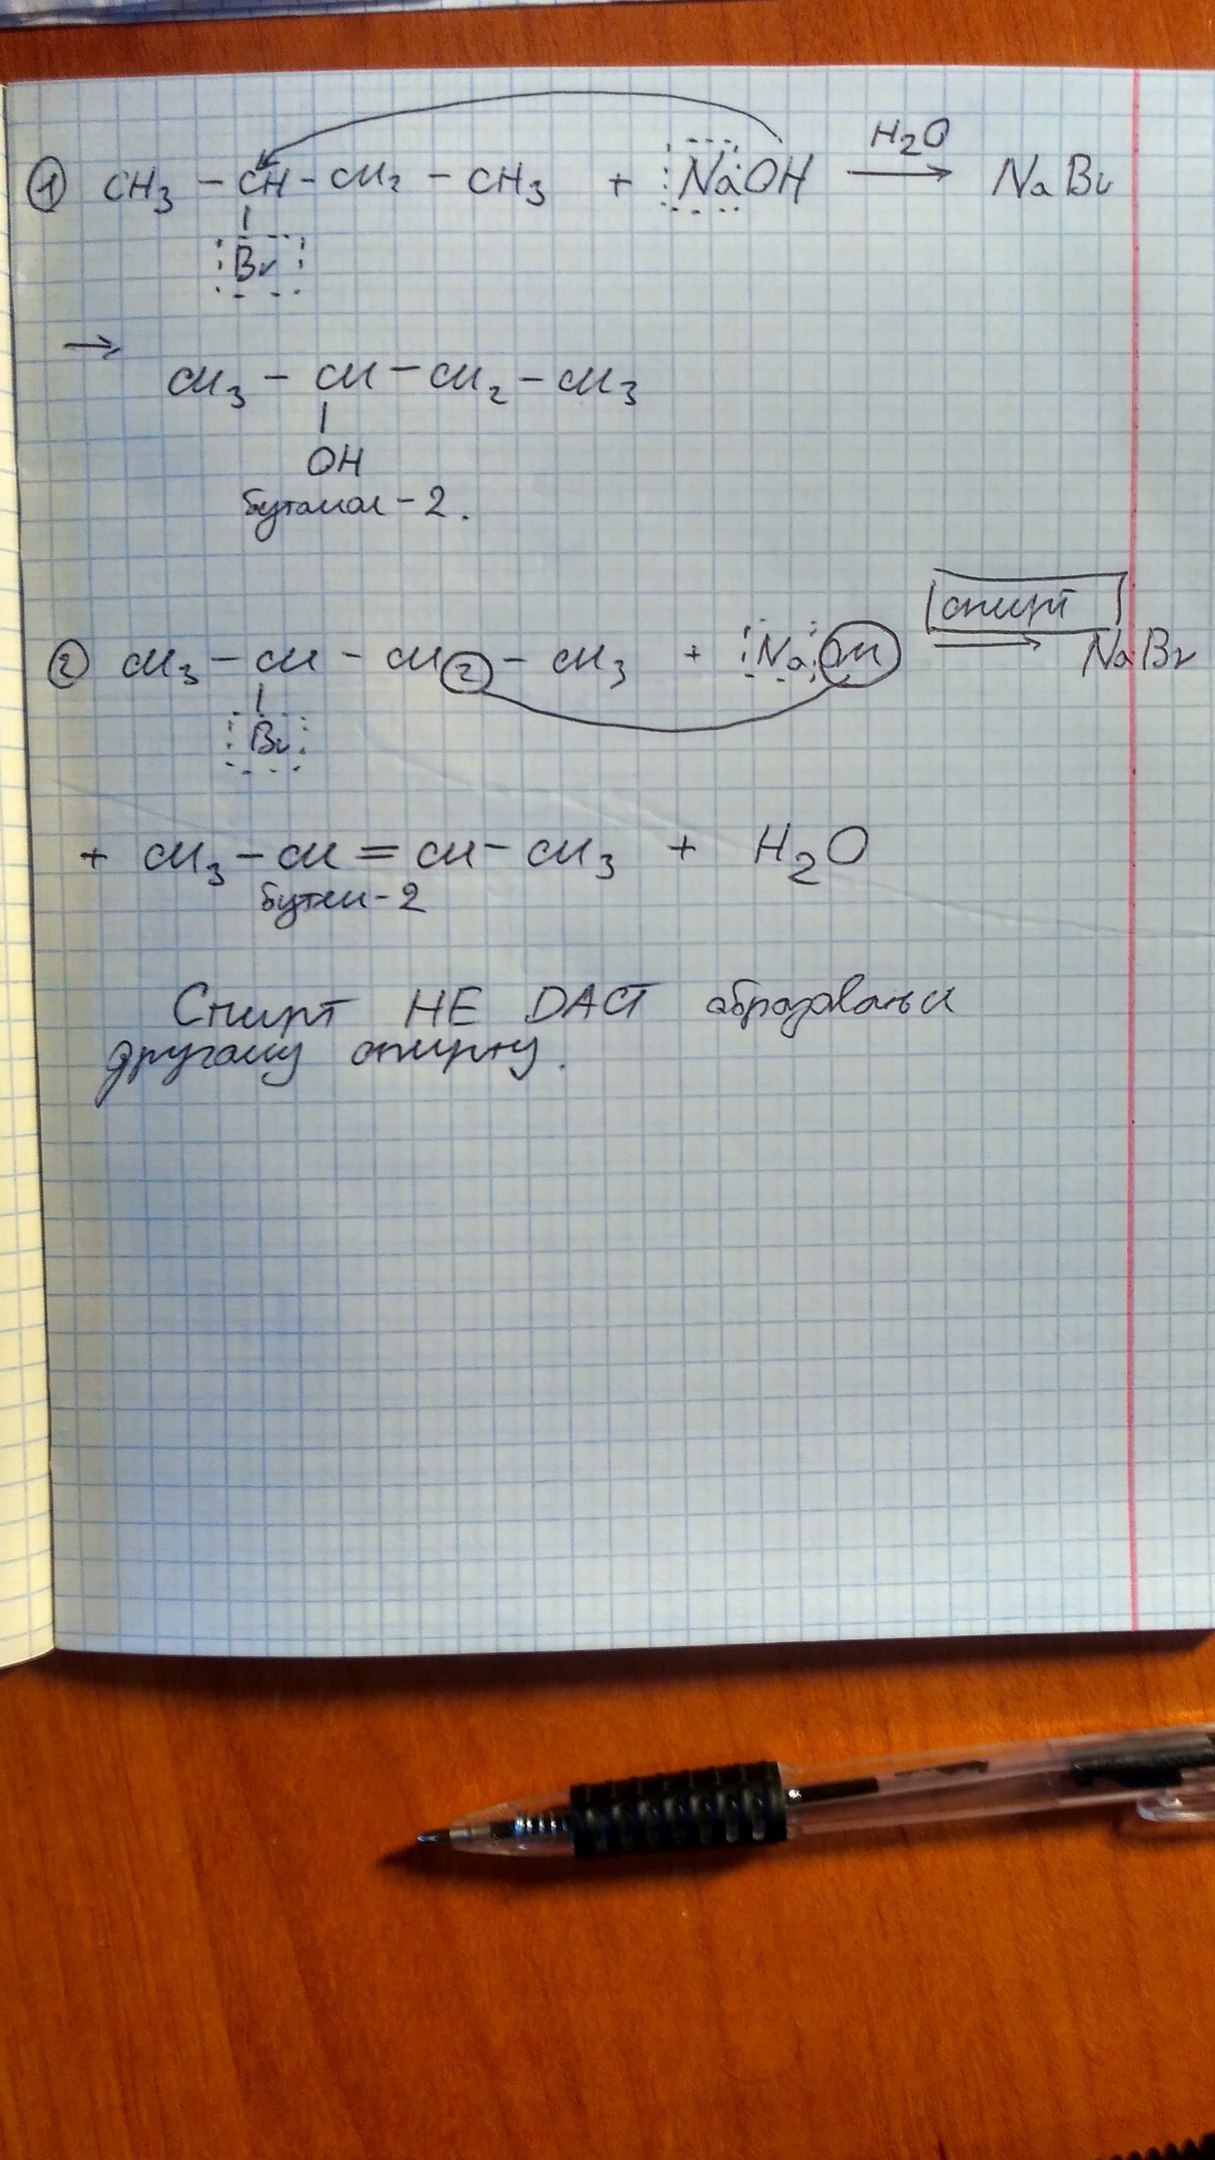 ① CH3 – CH – CH2 – CH3 + NaOH →H2O NaBr
|
Br
→
CH3 – CH – CH2 – CH3
|
OH
бутанол-2.
② CH3 – CH – CH2 – CH3 + NaOH →спирт NaBr
|
Br
+ CH3 – CH = CH – CH3 + H2O
бутен-2
Спирт НЕ DАСТ образоваться
другому спирту.